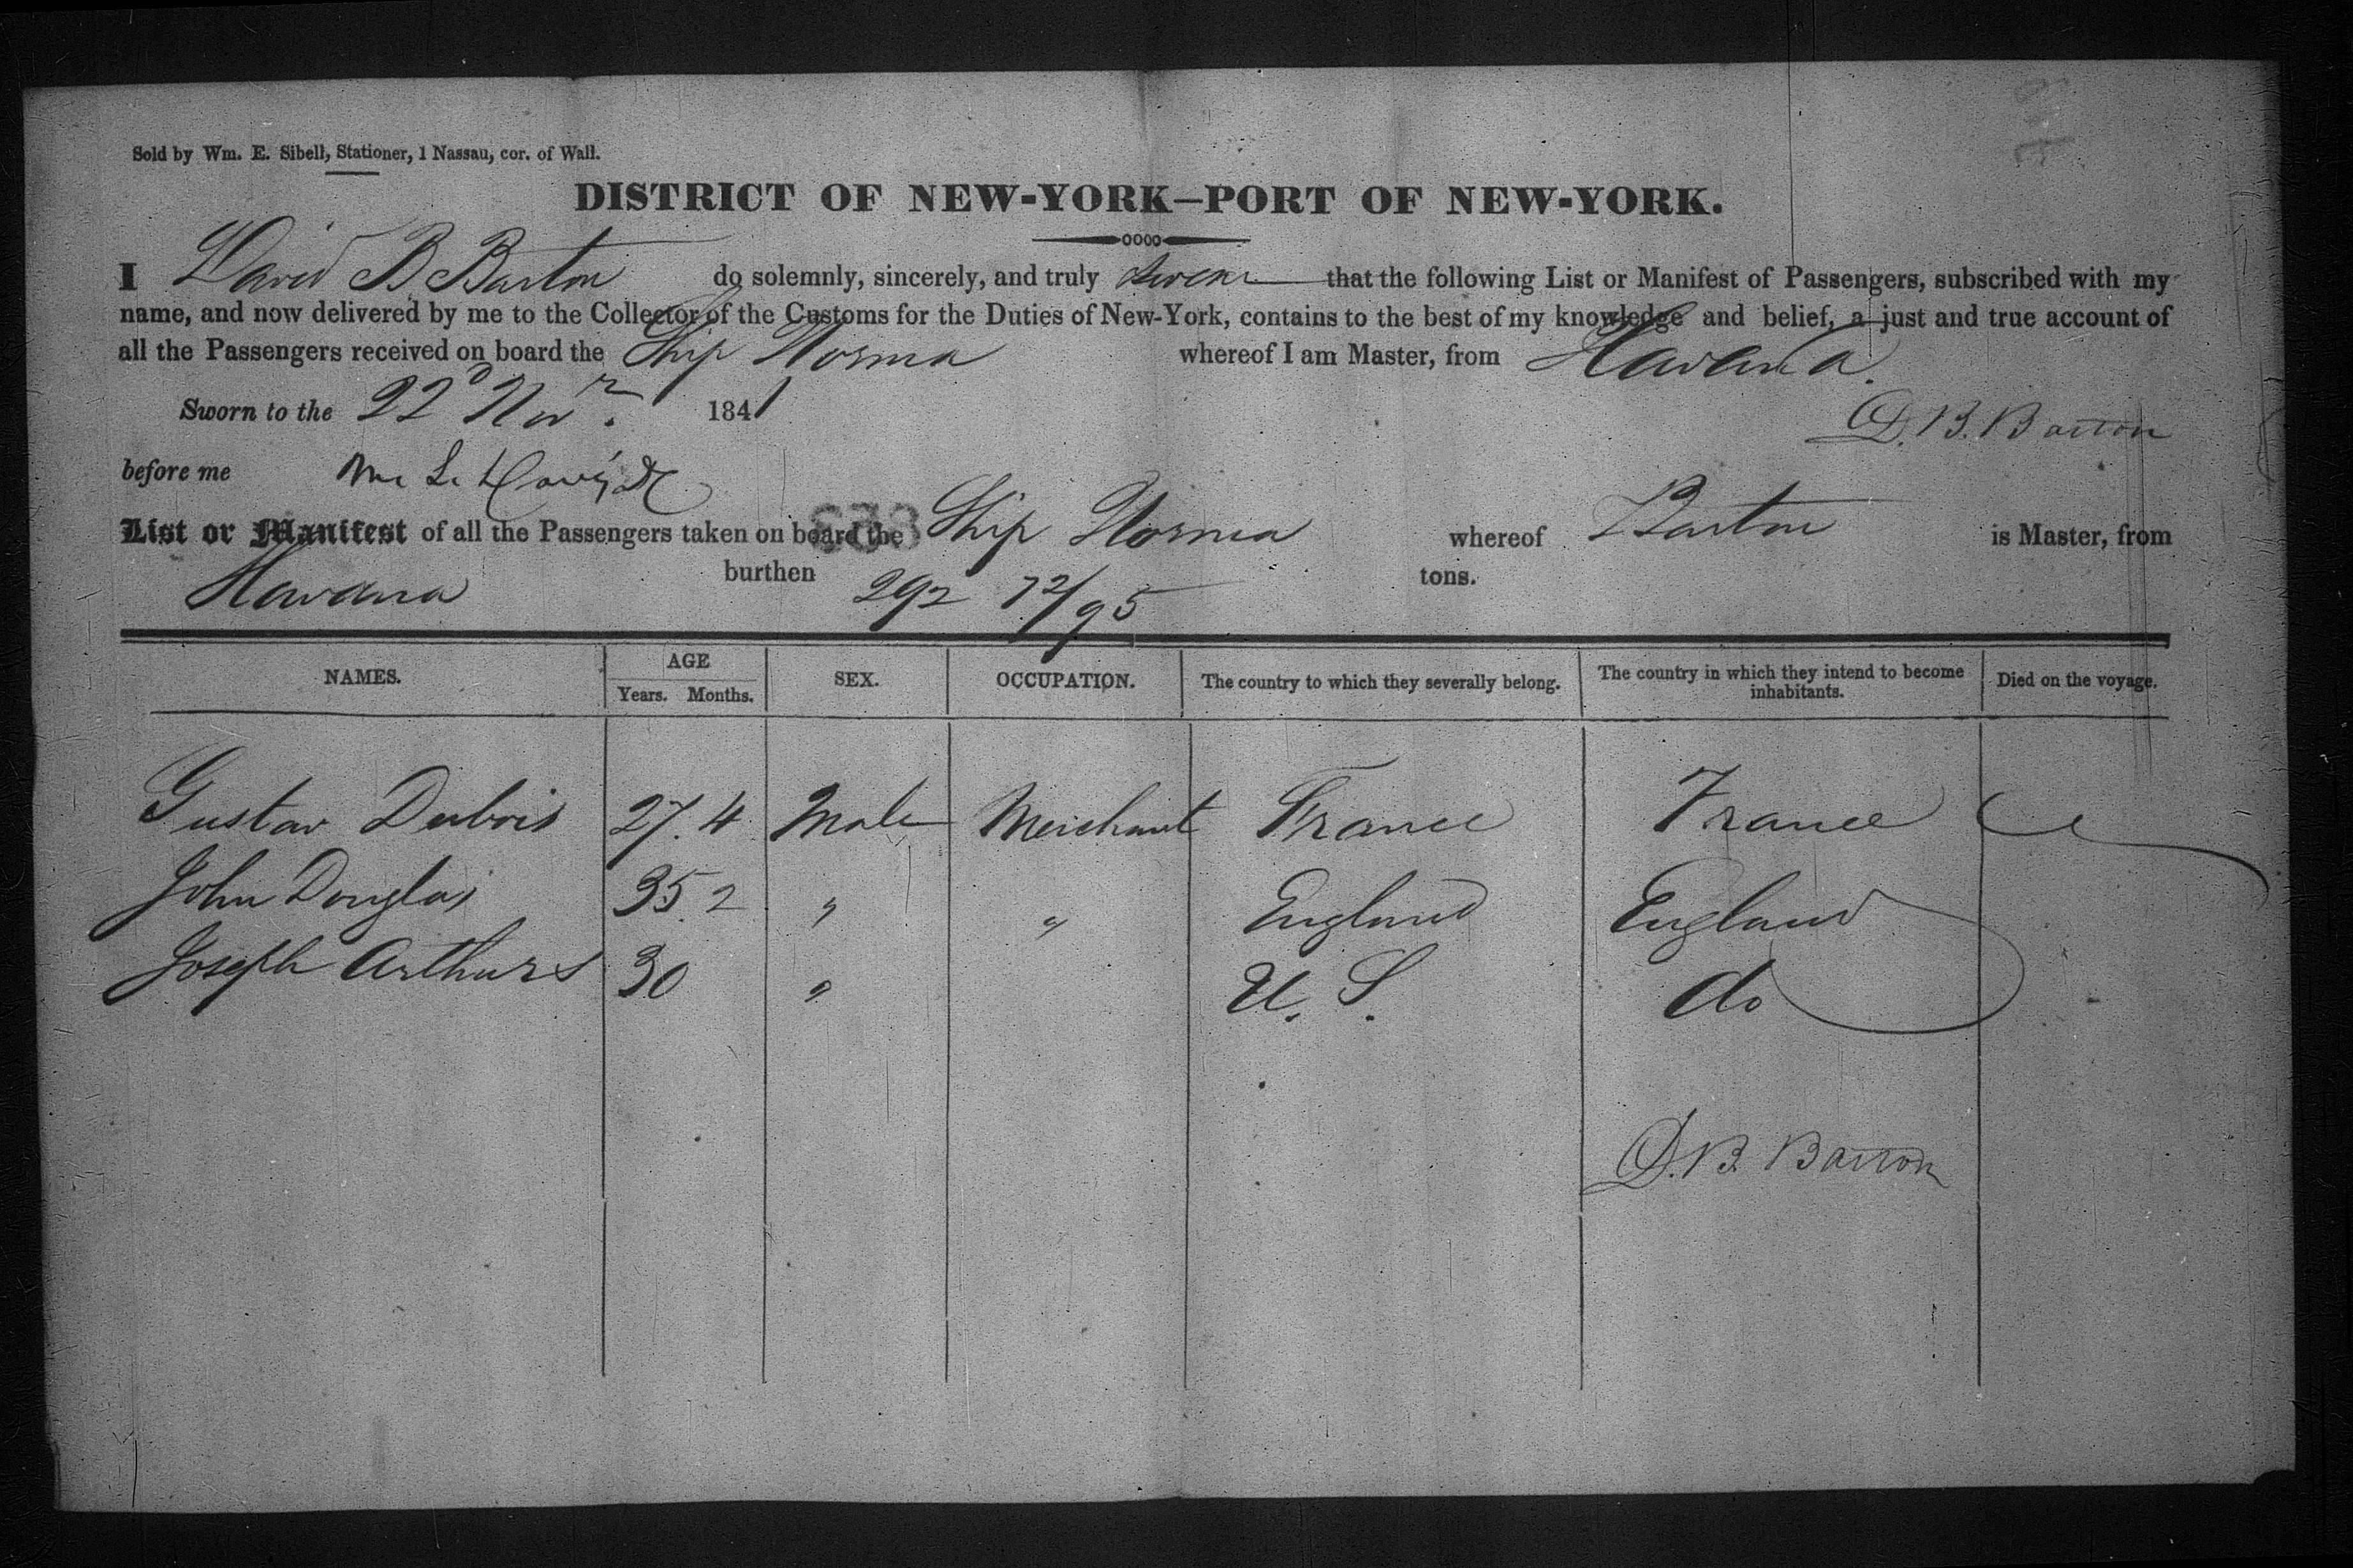 Sold by Wm. E. Sibell, Stationer, 1 Nassau, cor. of Wall.
DISTRICT OF NEW-YORK—PORT OF NEW-YORK.
I David B Barton do solemnly, sincerely, and truly swear that the following List or Manifest of Passengers, subscribed with my
name, and now delivered by me to the Collector of the Customs for the Duties of New-York, contains to the best of my knowledge and belief, a just and true account of
all the Passengers received on board the Ship Norma whereof I am Master, from Havana.
Sworn to the 22d Novr. 1841
D. B. Barton
before me
List or Manifest of all the Passengers taken on board the Ship Norma whereof Barton is Master, from
Havana burthen 292 72/95 tons.
NAMES. AGE Years. Months. SEX. OCCUPATION. The country to which they severally belong. The country in which they intend to become inhabitants. Died on the voyage.
Gustav Dubois 27. 4 Male Merchant France France
John Douglas 35. 2 " " England England
Joseph Arthurs 30 " U. S. do
D. B. Barton